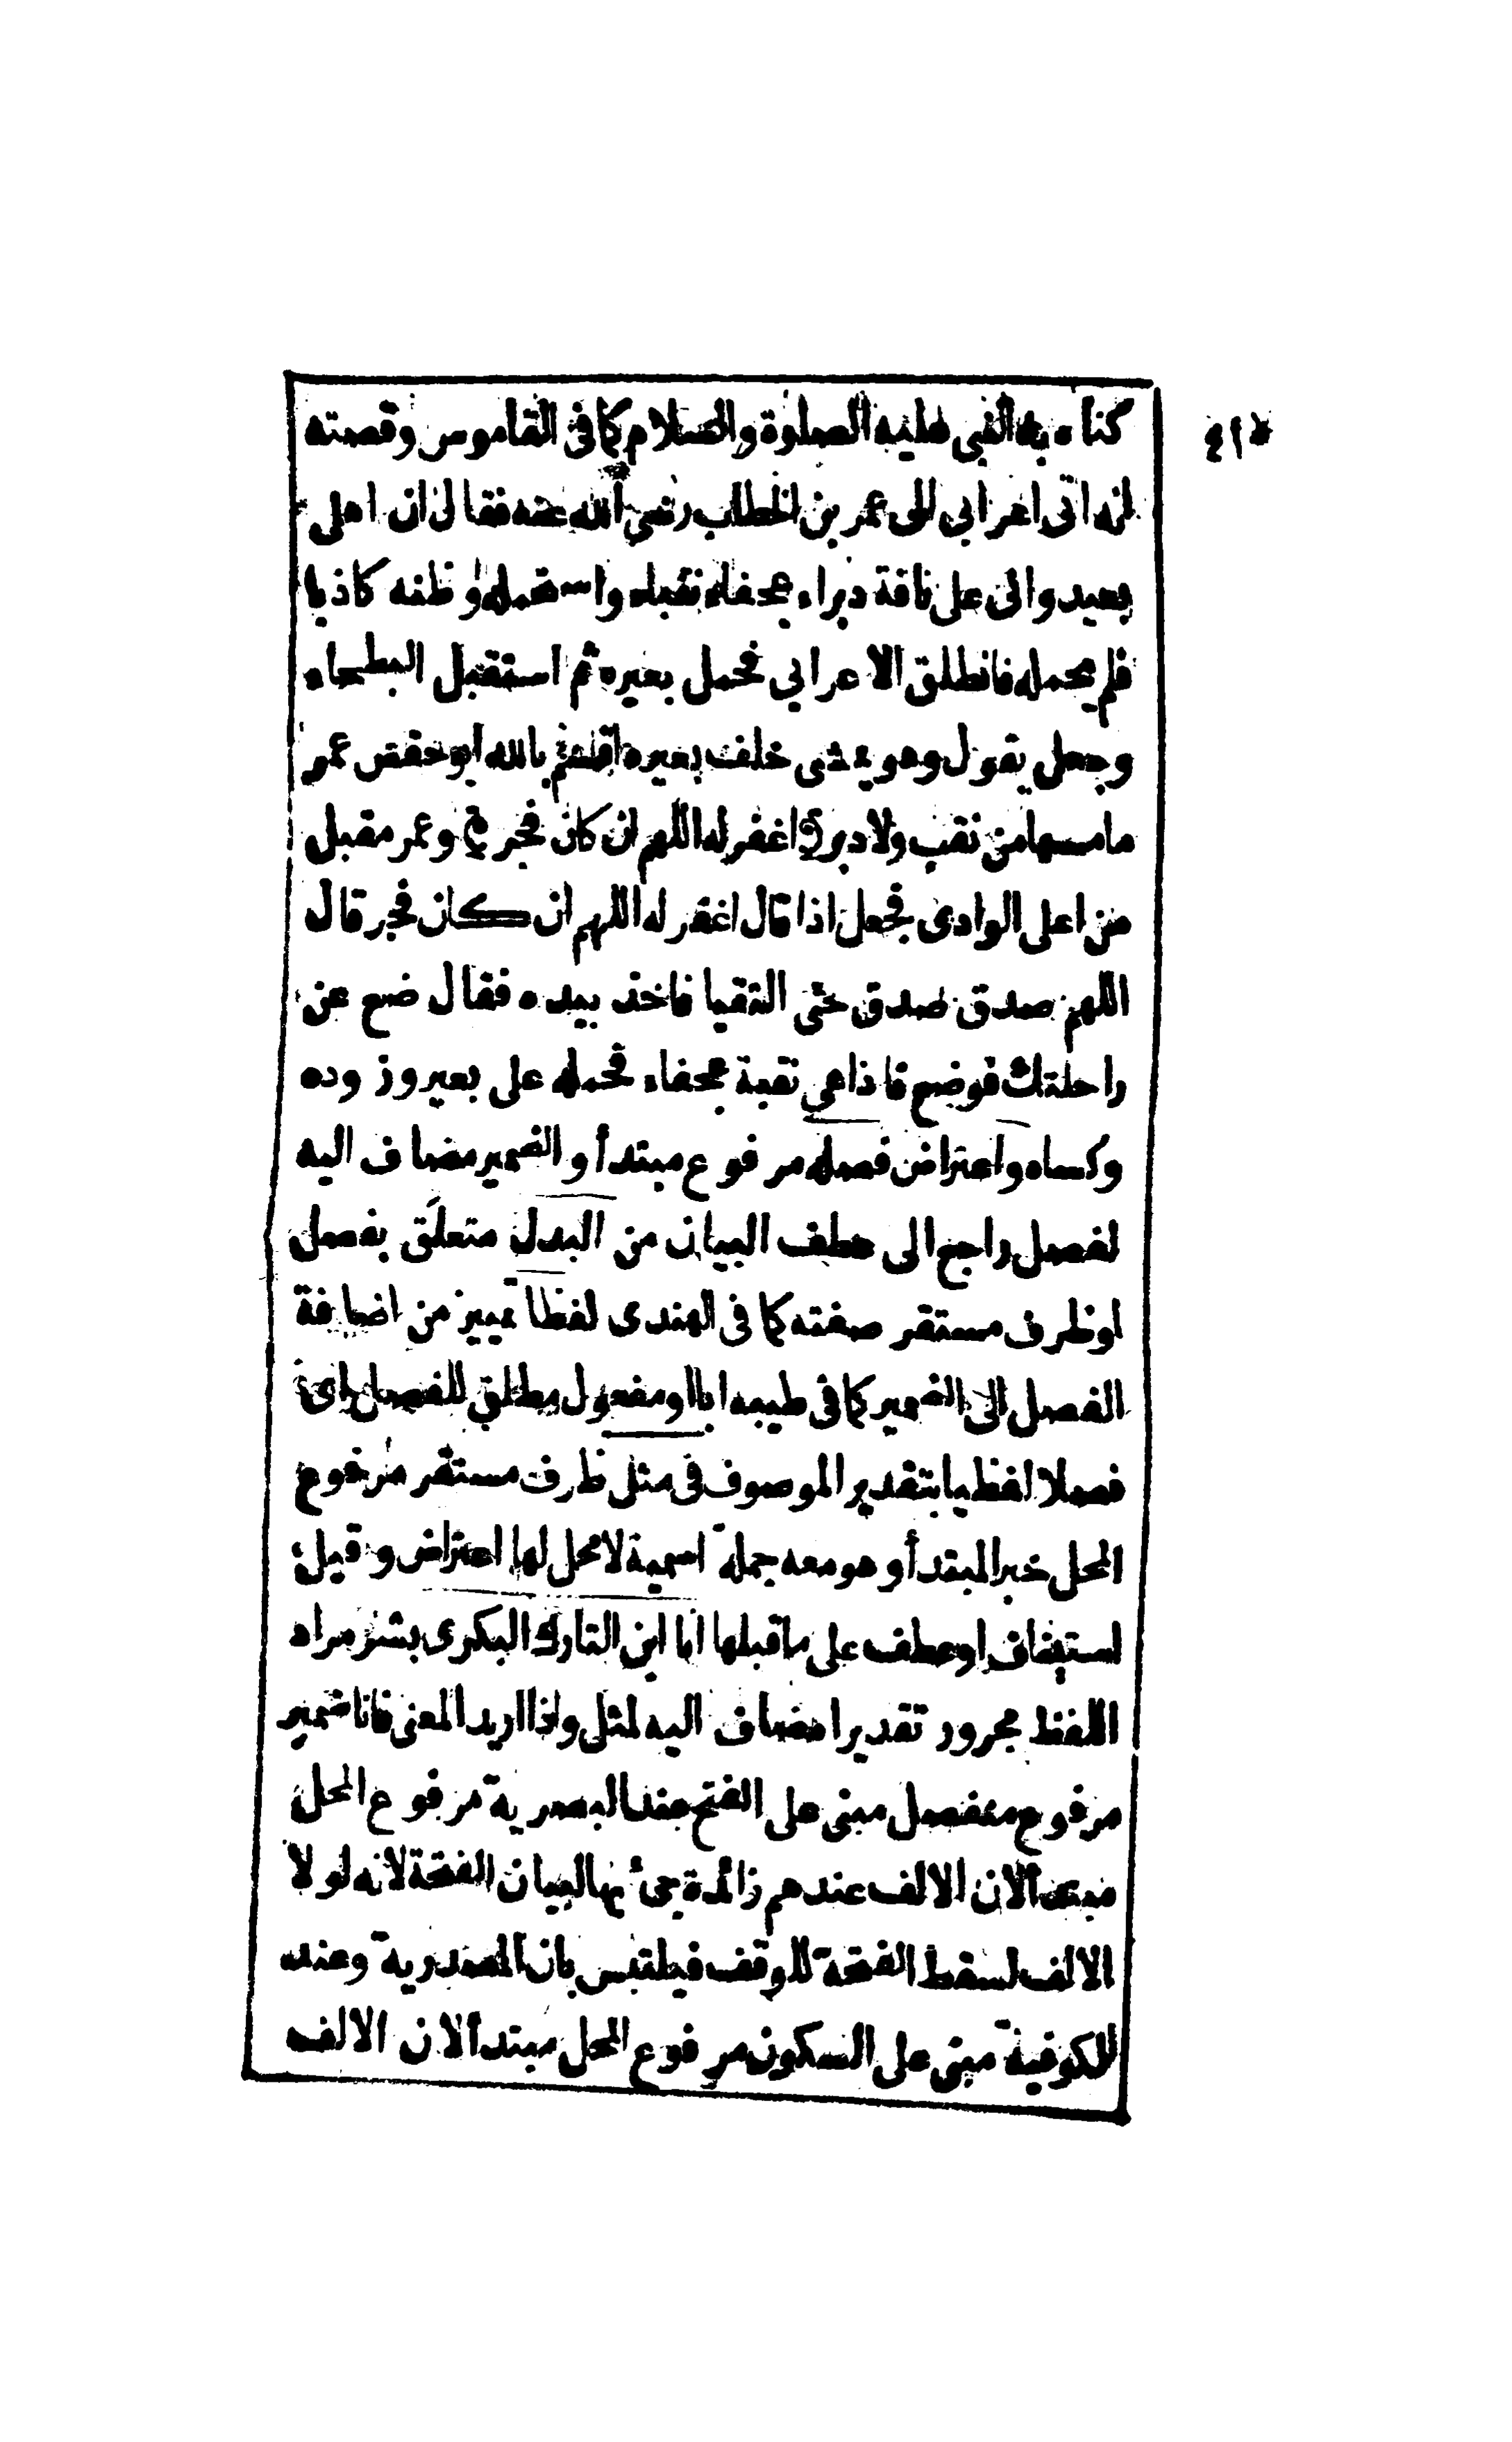 كناه به النبى عليه الصلوة والسلام كما فى القاموس وقصته
انه اتى اعرابى الى عمر بن الخطاب رضى الله عنه فقال ان اهلى
بعيد وانى على ناقة دبراء عجفاء نقباء واستحمله وظنه كاذبا
فلم يحمله فانطلق الاعرابى فحمل بعيره ثم استقبل البطحاء
وجعل يقول وهو يمشى خلف بعيره اقسم بالله ابو حفص عمر
ما مسها من نقب ولا دبر اغفر له اللهم ان كان فجر وعمر مقبل
من اعلى الوادى فجعل اذا قال اغفر له اللهم ان كان فجر قال
اللهم صدق صدق حتى التقيا فاخذ بيده فقال ضع عن
راحلتك فوضع فاذا هى نقبة عجفاء فحمله على بعير وزوده
وكساه واعتراض فصله مرفوع مبتدأ والضمير مضاف اليه
لفصل راجع الى عطف البيان من البدل متعلق بفصل
او ظرف مستقر صفته كما فى الهندى لفظا تمييز من اضافة
الفصل الى الضمير كما فى طيبه ابا او مفعول مطلق للفصل اى
فصلا لفظيا بتقدير الموصوف فى مثل ظرف مستقر مرفوع
المحل خبر المبتدأ وهو معه جملة اسمية لا محل لها اعتراض وقيل
استيناف او عطف على ما قبلها انا ابن التارك البكرى بشر مراد
اللفظ مجرور تقديرا مضاف اليه لمثل واذا اريد المعنى فانا ضمير
مرفوع منفصل مبنى على الفتح عند البصرية مرفوع المحل
مبتدأ لان الالف عندهم زائدة جئ بها لبيان الفتحة لانه لولا
الالف لسقط الفتحة للوقف فيلتبس بان المصدرية وعند
الكوفية مبنى على السكون مرفوع المحل مبتدأ لان الالف